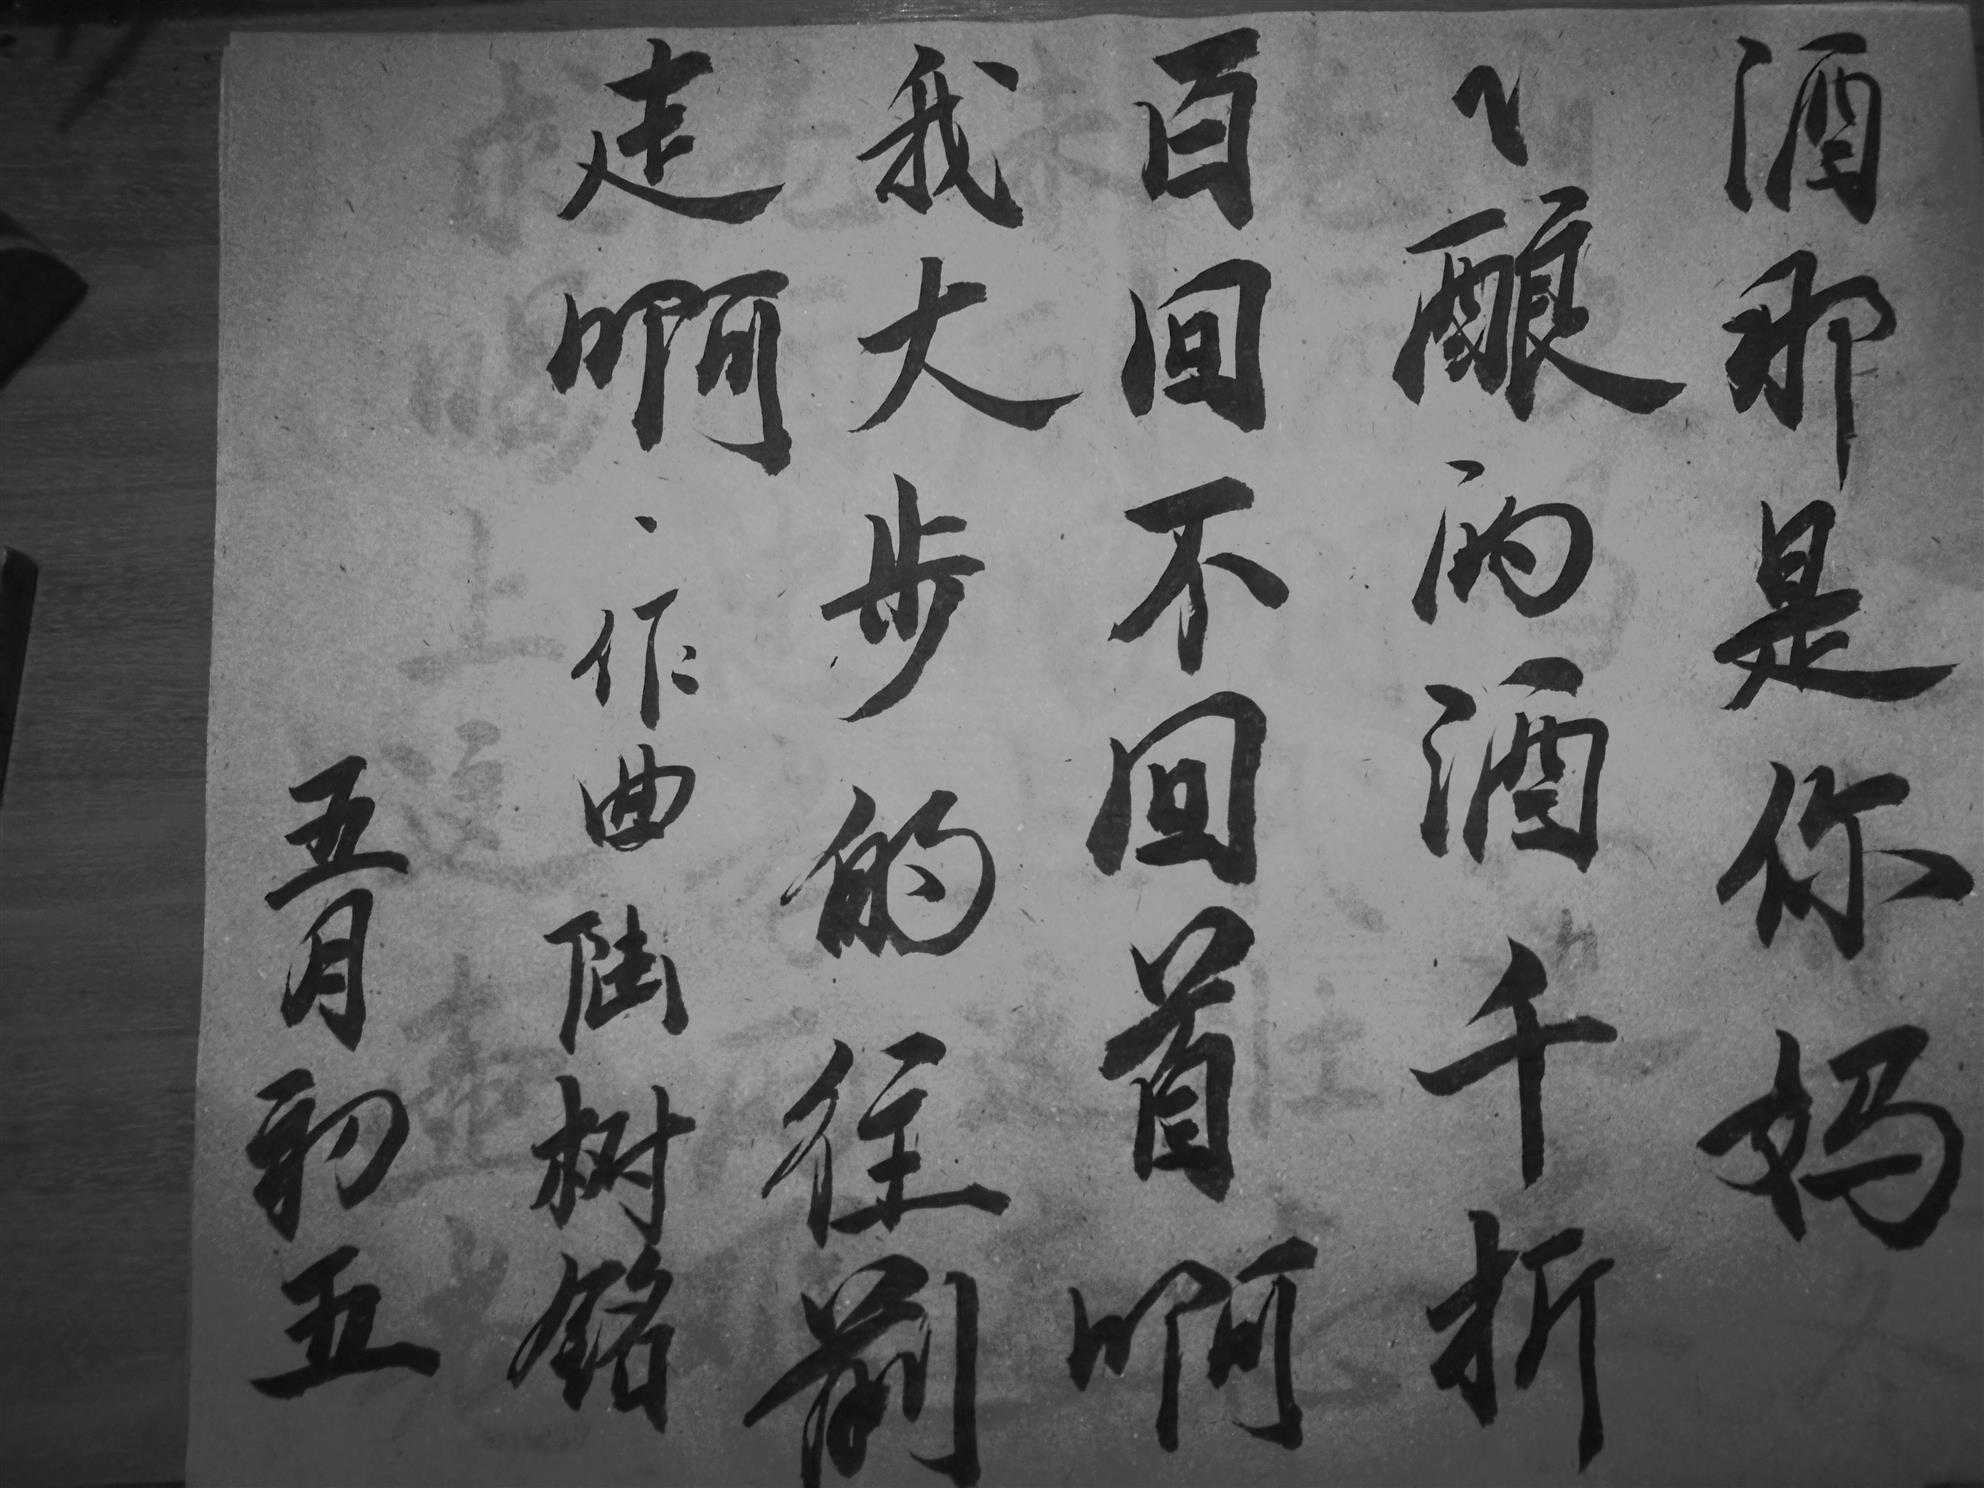 酒那是你妈
〻酿的酒千折
百回不回首啊
我大步的往前
走啊·作曲陆树铭
五月初五